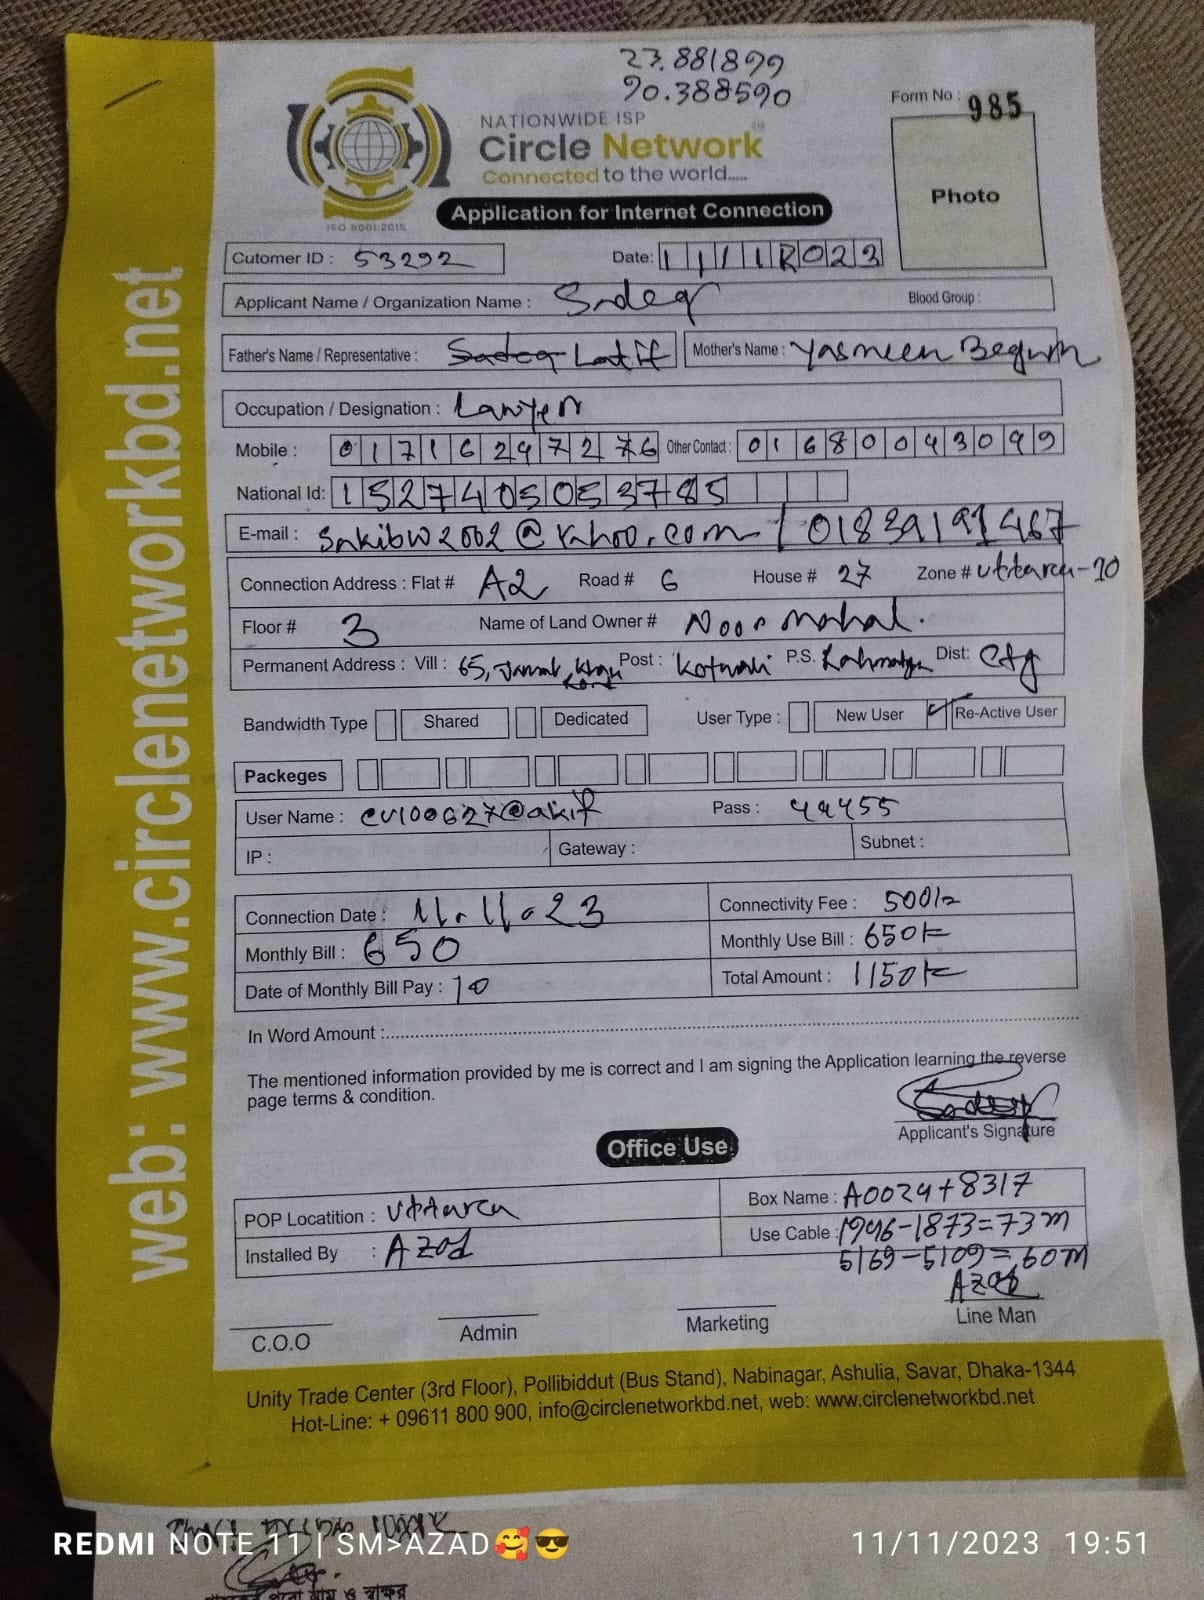 23.881899
90.388590
Form No : 985
NATIONWIDE ISP
Circle Network
Connected to the world.....
ISO 9001:2015
Photo
Application for Internet Connection
Cutomer ID : 53292 Date: 11/11/2023
Applicant Name / Organization Name : Sadeq Blood Group :
Father's Name / Representative : Sadeq Latif Mother's Name : Yasmeen Begum
Occupation / Designation : Lawyer
Mobile : Other Contact : 01680043099
National Id: 1527405053785
E-mail : Sakibw2002@Yahoo.com / 01839191467
Connection Address : Flat # A2 Road # 6 House # 27 Zone # Uttara-10
Floor # 3 Name of Land Owner # Noor mahal.
Permanent Address : Vill : 65, Post : Kotwali P.S. Dist: Ctg
Bandwidth Type Shared Dedicated User Type : New User Re-Active User
Packeges
User Name : Pass :
IP : Gateway : Subnet :
Connection Date : 11.11.23 Connectivity Fee : 500/=
Monthly Bill : 650 Monthly Use Bill : 650/=
Date of Monthly Bill Pay : 10 Total Amount : 1150/=
In Word Amount :
The mentioned information provided by me is correct and I am signing the Application learning the reverse
page terms & condition.
Applicant's Signature
Office Use
POP Locatition : Uttara Box Name : A0024+8317
Installed By : Azad Use Cable : 1946-1873=73m
5169-5109=60m
Azad
C.O.O Admin Marketing Line Man
Unity Trade Center (3rd Floor), Pollibiddut (Bus Stand), Nabinagar, Ashulia, Savar, Dhaka-1344
Hot-Line: + 09611 800 900, info@circlenetworkbd.net, web: www.circlenetworkbd.net
web: www.circlenetworkbd.net
REDMI NOTE 11 | SM>AZAD🥰😎 11/11/2023 19:51